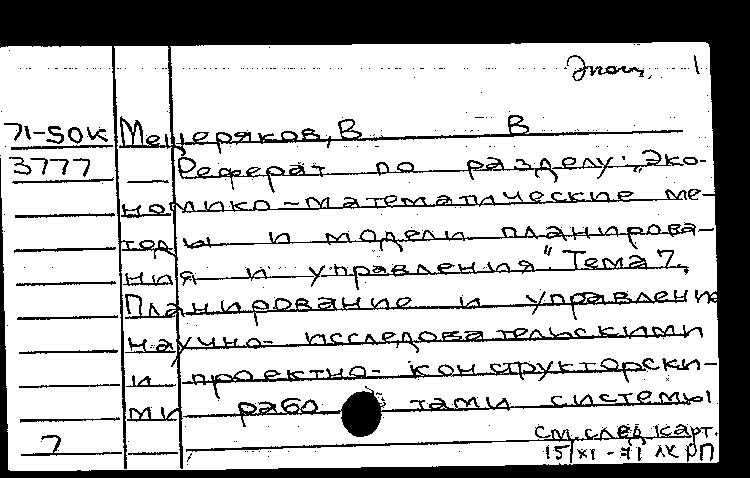 Экон. 1
71-50К Мещеряков, В В
3777 Реферат по разделу: „Эко-
номико-математические ме-
тоды и модели планирова-
ния и управления“. Тема 7.
Планирование и управлени
научно-исследовательскими
и проектно-конструкторски-
ми работами системы
7 см. след карт.
15/XI-71 ЛК РП